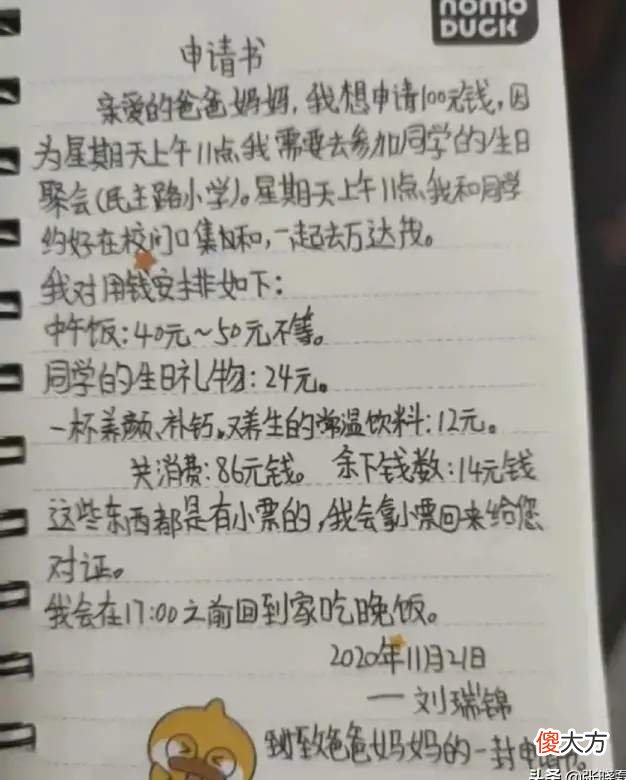 nomo
DUCK
申请书
亲爱的爸爸妈妈,我想申请100元钱,因
为星期天上午11点我需要去参加同学的生日
聚会(民主路小学)。星期天上午11点我和同学
约好在校门口集和,一起去万达茂。
我对用钱安排如下:
中午饭:40元~50元不等。
同学的生日礼物:24元。
一杯养颜、补钙。又养生的常温饮料:12元。
共消费:86元钱。 余下钱数:14元钱
这些东西都是有小票的,我会拿小票回来给您
对证。
我会在17:00之前回到家吃晚饭。
2020年11月21日
——刘瑞锦
致爸爸妈妈的一封申请书。
傻大方
头条@张晓